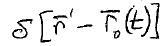 δ[r̄' - r̄₀(t)]